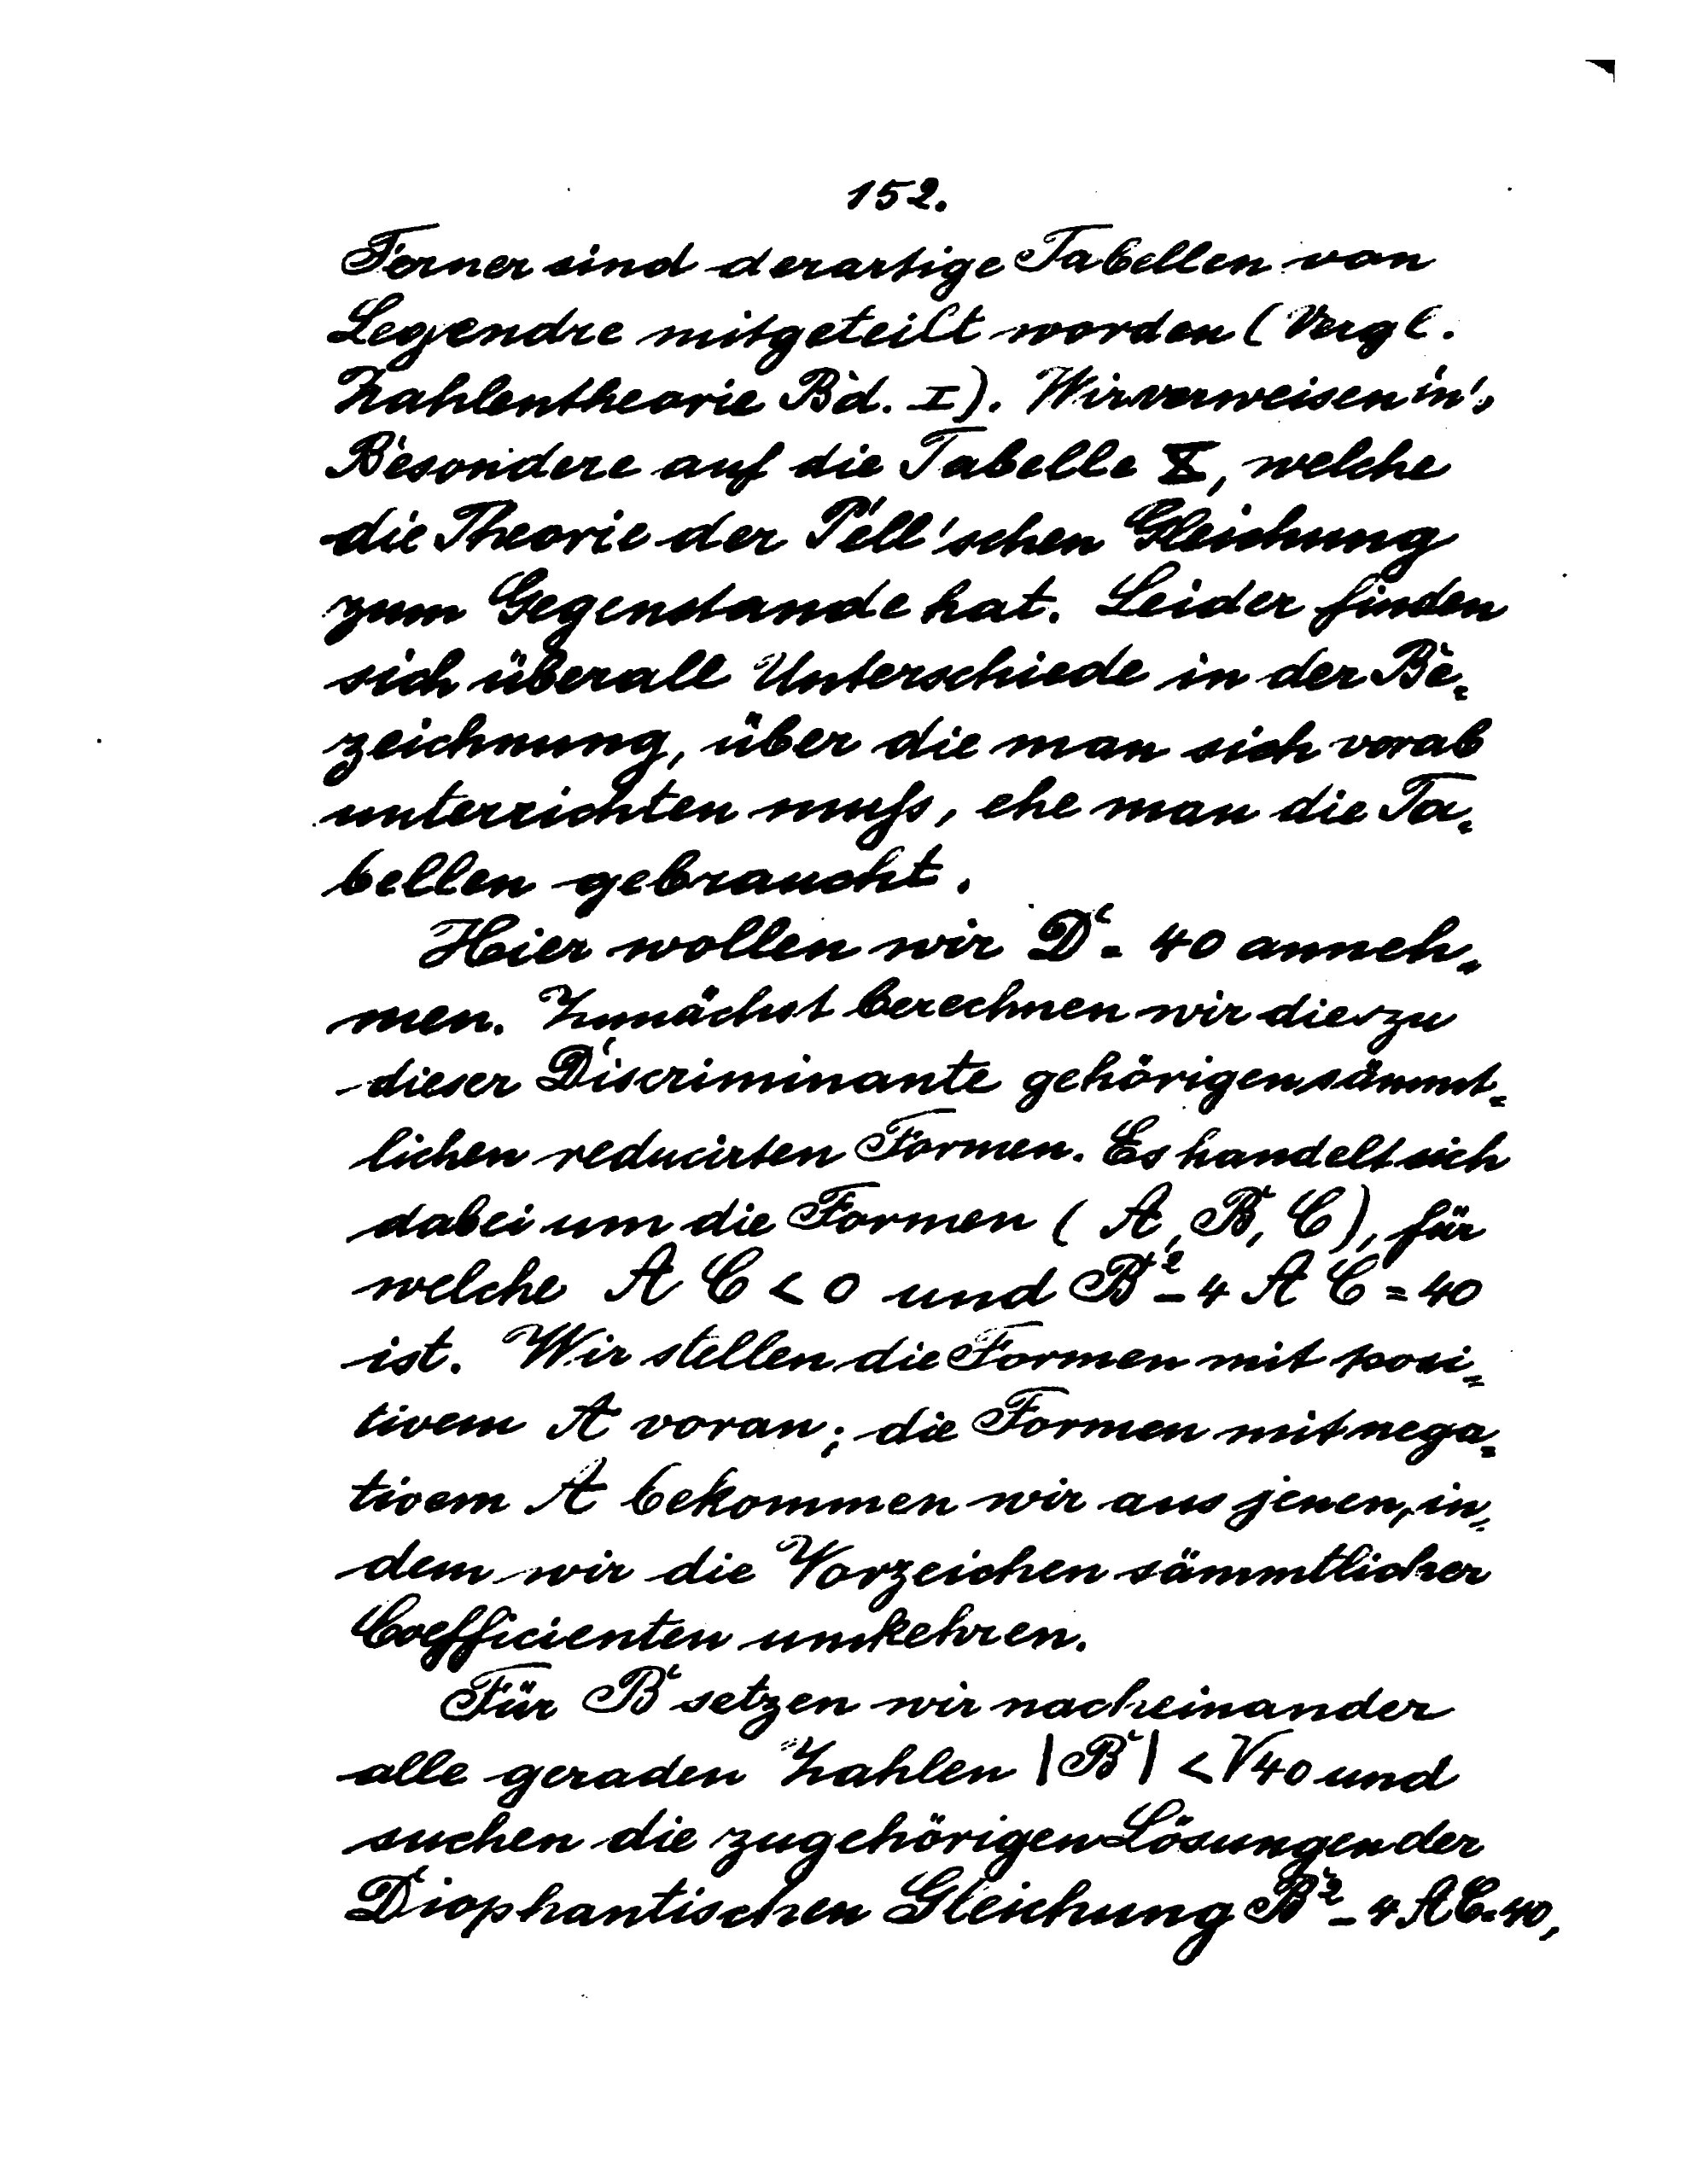 152.
Ferner sind derartige Tabellen von
Legendre mitgeteilt worden (Vergl.
Zahlentheorie Bd. I). Wir verweisen in's
Besondere auf die Tabelle X, welche
die Theorie der Pell'schen Gleichung
zum Gegenstande hat. Leider finden
sich überall Unterschiede in der Be-
zeichnung, über die man sich vorab
unterrichten muss, ehe man die Ta-
bellen gebraucht.
Hier wollen wir D = 40 anneh-
men. Zunächst berechnen wir die zu
dieser Discriminante gehörigen sämmt-
lichen reducirten Formen. Es handelt sich
dabei um die Formen (A, B, C), für
welche A C < 0 und B² - 4 A C = 40
ist. Wir stellen die Formen mit posi-
tivem A voran; die Formen mit nega-
tivem A bekommen wir aus jenen, in-
dem wir die Vorzeichen sämmtlicher
Coefficienten umkehren.
Für B setzen wir nacheinander
alle geraden Zahlen |B| < √40 und
suchen die zugehörigen Lösungen der
Diophantischen Gleichung B² - 4 AC = 40,